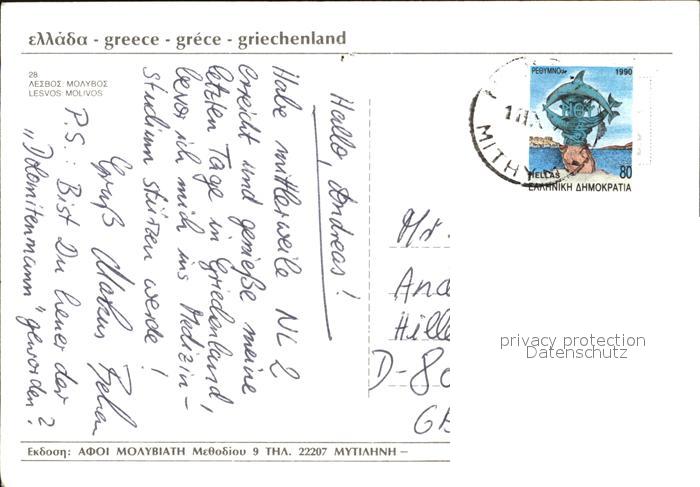 ελλάδα - greece - gréce - griechenland
28
ΛΕΣΒΟΣ: ΜΟΛΥΒΟΣ
LESVOS: MOLIVOS
Hallo, Andreas!
Habe mittlerweile NL 2
erreicht und genieße meine
letzten Tage in Griechenland,
bevor ich mich ins Medizin-
studium stürzen werde!
Gruß Markus
P.S.: Bist Du heuer der
„Dolomitenmann" geworden?
ΡΕΘΥΜΝΟ 1990
HELLAS 80
ΕΛΛΗΝΙΚΗ ΔΗΜΟΚΡΑΤΙΑ
ΜΙΤΗΥ
Mr.
And
Hille
D-80
GE
privacy protection
Datenschutz
Εκδοση: ΑΦΟΙ ΜΟΛΥΒΙΑΤΗ Μεθοδίου 9 ΤΗΛ. 22207 ΜΥΤΙΛΗΝΗ –